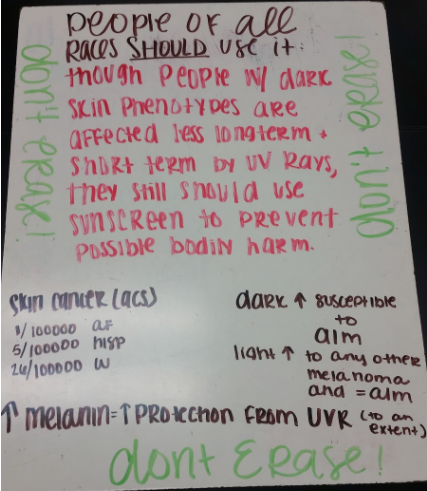 people of all
races SHOULD use it.
though people w/ dark
skin phenotypes are
affected less longterm +
short term by UV rays,
they still should use
sunscreen to prevent
possible bodily harm.
don't erase!
don't erase!
skin cancer (acs)
1/100000 af
5/100000 hisp
26/100000 W
dark ↑ susceptible
to
alm
light ↑ to any other
melanoma
and = alm
↑ melanin = ↑ protection from UVR (to an
extent)
dont erase!